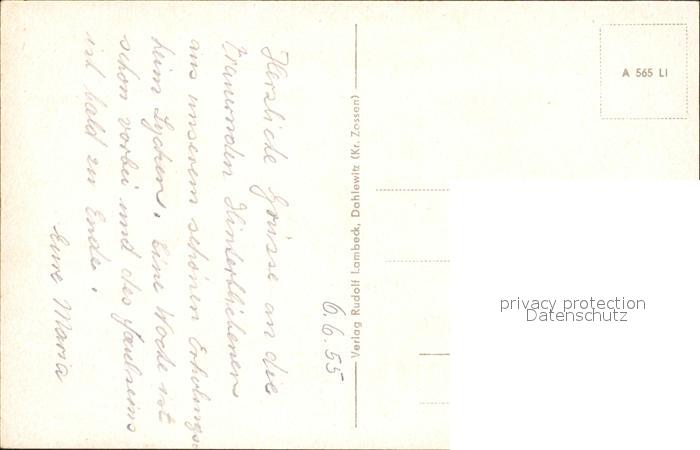 6.6.55
Herzliche Grüsse an die
trauernden Hinterbliebenen
aus unserem schönen Erholungs-
heim Lychen. Eine Woche ist
schon vorbei und des
ist bald zu Ende.
Eure Maria
Verlag Rudolf Lambeck, Dahlewitz (Kr. Zossen)
A 565 LI
privacy protection
Datenschutz